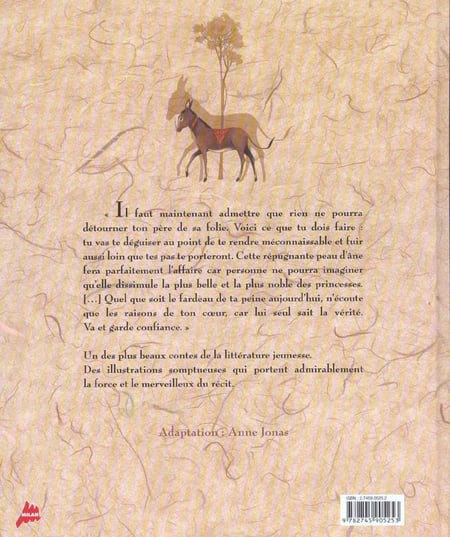 « Il faut maintenant admettre que rien ne pourra
détourner ton père de sa folie. Voici ce que tu dois faire :
tu vas te déguiser au point de te rendre méconnaissable et fuir
aussi loin que tes pas te porteront. Cette répugnante peau d'âne
fera parfaitement l'affaire car personne ne pourra imaginer
qu'elle dissimule la plus belle et la plus noble des princesses.
[…] Quel que soit le fardeau de ta peine aujourd'hui, n'écoute
que les raisons de ton cœur, car lui seul sait la vérité.
Va et garde confiance. »
Un des plus beaux contes de la littérature jeunesse.
Des illustrations somptueuses qui portent admirablement
la force et le merveilleux du récit.
Adaptation : Anne Jonas
MILAN
ISBN : 2.7459.0525.2
9 782745 905253